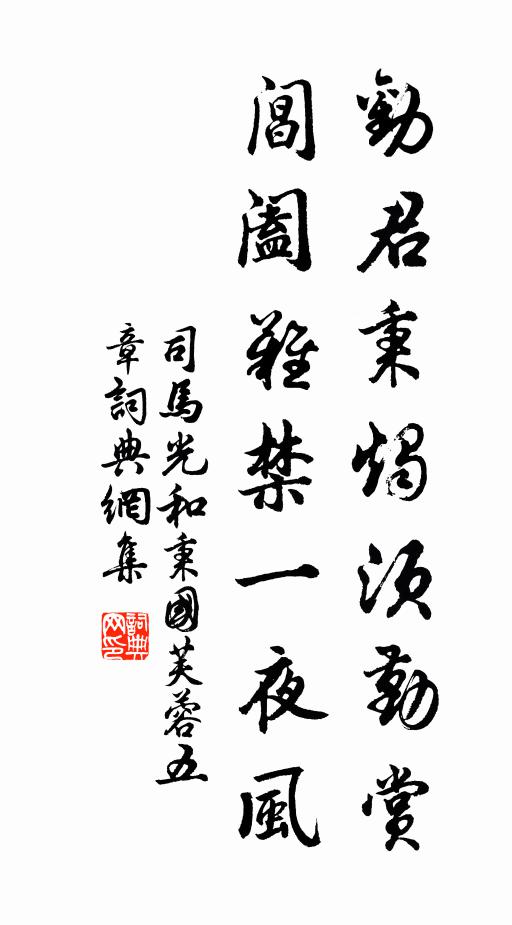 勸君秉燭須勤賞
閶闔難禁一夜風
司馬光和秉國芙蓉五
章詞典網集
詞典
网印